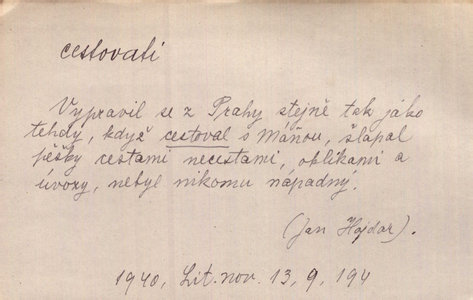 cestovati
Vypravil se z Prahy stejně tak jako
tehdy, když cestoval s Máňou, šlapal
pěšky cestami necestami, oblikami a
úvozy, nebyl nikomu nápadný.
(Jan Hajdar).
1940, Lit. nov. 13, 9, 194